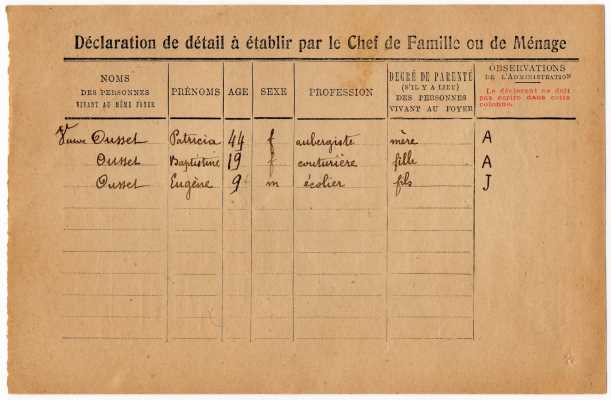 Déclaration de détail à établir par le Chef de Famille ou de Ménage
NOMS
DES PERSONNES
VIVANT AU MÊME FOYER
PRÉNOMS
AGE
SEXE
PROFESSION
DEGRÉ DE PARENTÉ
(S'IL Y A LIEU)
DES PERSONNES
VIVANT AU FOYER
OBSERVATIONS
DE L'ADMINISTRATION
Le déclarant ne doit
pas écrire dans cette
colonne.
Veuve Ousset Patricia 44 f aubergiste mère A
Ousset Baptistine 19 f couturière fille A
Ousset Eugène 9 m écolier fils J